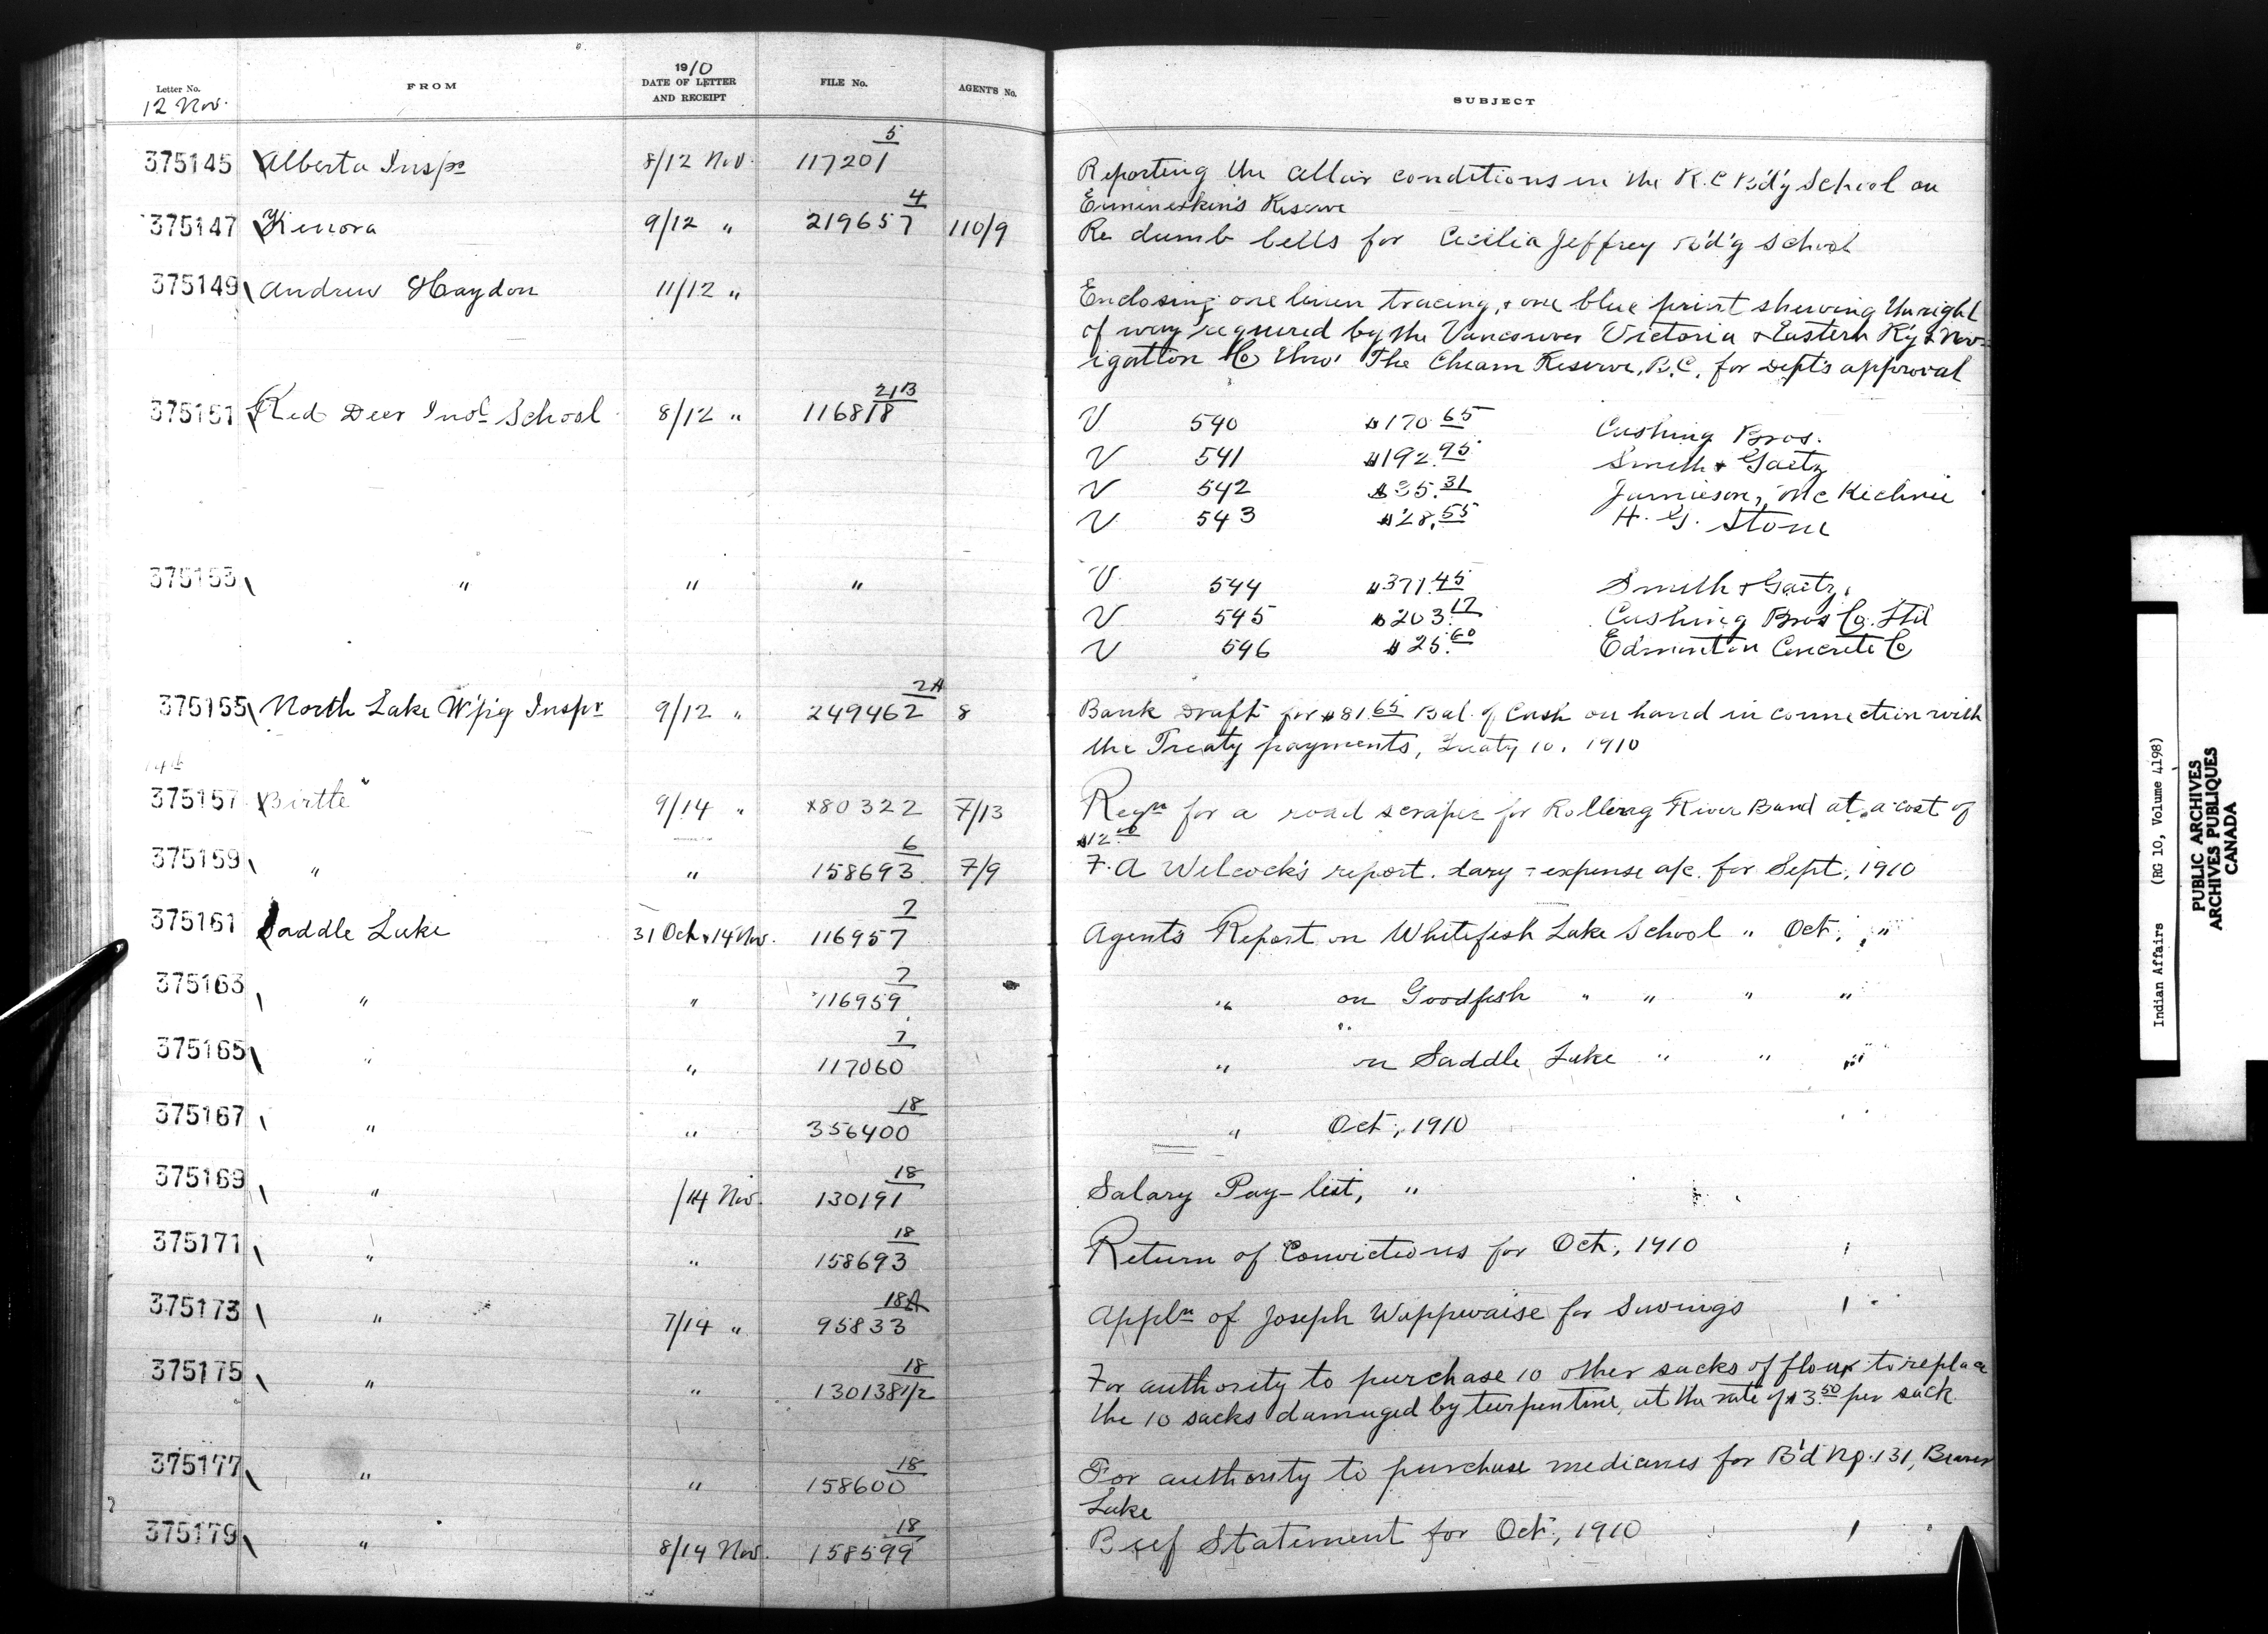 Letter No. FROM 1910 DATE OF LETTER AND RECEIPT FILE No. AGENT'S No. SUBJECT
12 Nov.
375145 Alberta Inspr 8/12 Nov. 117201 5 Reporting the conditions in the R.C Bd'g School on
Ermineskin's Reserve
375147 Kenora 9/12 " 219657 4 110/9 Re dumb bells for Cecilia Jeffrey Bd'g School
375149 Andrew Haydon 11/12 " Enclosing one linen tracing, & one blue print shewing the right
of way required by the Vancouver Victoria & Eastern R'y & Nav-
igation Co thro' The Cheam Reserve, B.C. for Dept's approval
375151 Red Deer Indl School 8/12 " 116818 21B V 540 $170.65 Cushing Bros.
V 541 $192.95 Smith & Gaetz
V 542 $35.31 Jamieson, McKechnie
V 543 $28.55 H. G. Stone
375153 " " " V 544 $371.45 Smith & Gaetz,
V 545 $203.17 Cushing Bros Co. Ltd
V 546 $25.60 Edmonton Concrete Co
375155 North Lake W'pig Inspr 9/12 " 249462 2A 8 Bank Draft for $81.65 Bal. of Cash on hand in connection with
the Treaty payments, Treaty 10. 1910
14th
375157 Birtle 9/14 " 80322 7/13 Reqn for a road scraper for Rolling River Band at a cost of
$12.00
375159 " " 158693 6 7/9 F. A Welcock's report. diary & expense a/c. for Sept, 1910
375161 Saddle Lake 31 Oct & 14 Nov. 116957 7 Agent's Report on Whitefish Lake School " Oct, "
375163 " " 116959 7 " on Goodfish " " " "
375165 " " 117060 7 " on Saddle Lake " " "
375167 " " 356400 18 " Oct, 1910
375169 " /14 Nov. 130191 18 Salary Pay-list, "
375171 " " 158693 18 Return of Convictions for Oct, 1910
375173 " 7/14 " 95833 18A Appln of Joseph Wappwaise for Savings
375175 " " 130138 1/2 18 For authority to purchase 10 other sacks of flour to replace
the 10 sacks damaged by turpentine, at the rate of $3.50 per sack
375177 " " 158600 18 For authority to purchase medicines for B'd No. 131, Beaver
Lake
375179 " 8/14 Nov. 158599 18 Beef Statement for Oct, 1910
Indian Affairs (RG 10, Volume 4198)
PUBLIC ARCHIVES
ARCHIVES PUBLIQUES
CANADA